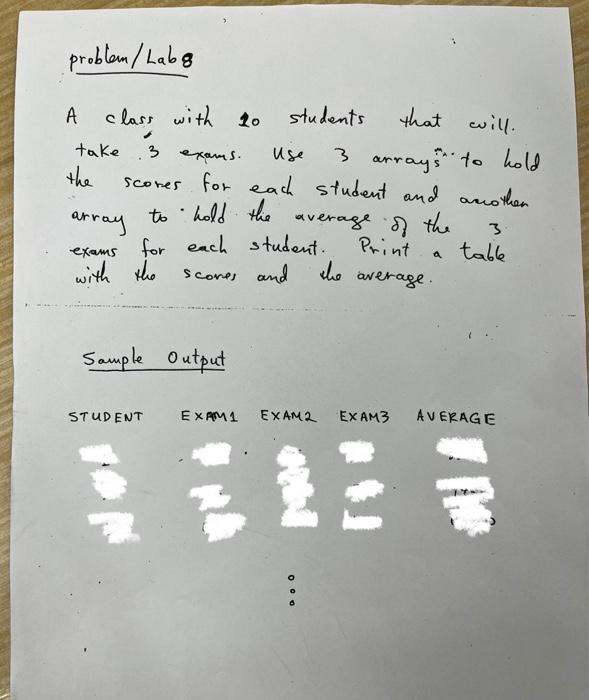 problem/Lab 8
A class with 20 students that will.
take 3 exams. Use 3 arrays to hold
the scores for each student and another
array to hold the average of the 3
exams for each student. Print a table
with the scores and the average.
Sample Output
STUDENT EXAM1 EXAM2 EXAM3 AVERAGE